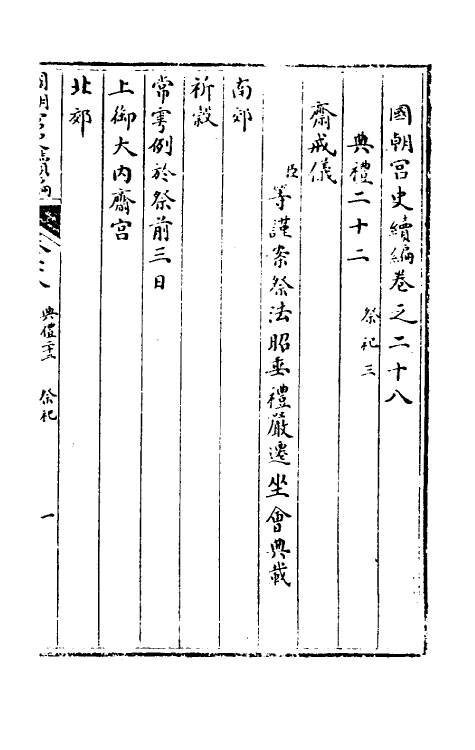 國朝宮史續編卷之二十八
典禮二十二　祭祀三
齋戒儀
臣等謹案祭法昭垂禮嚴遷坐會典載
南郊
祈穀
常雩例於祭前三日
上御大內齋宮
北郊
國朝宮史續編　卷二十八　典禮二十二　祭祀　一